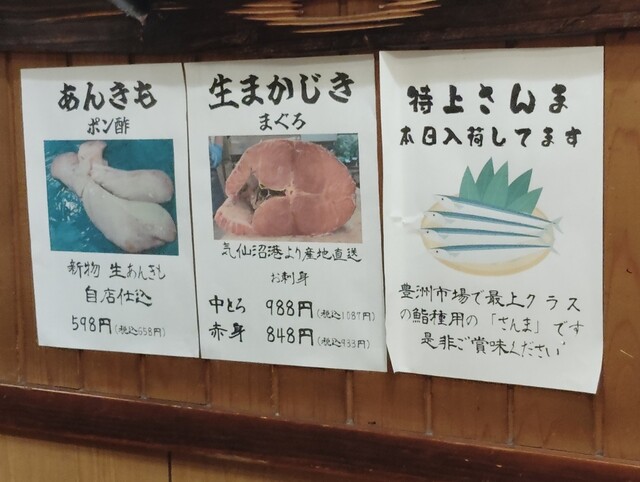 あんきも
ポン酢
新物 生あんきも
自店仕込
598円(税込658円)
生まかじき
まぐろ
気仙沼港より産地直送
お刺身
中とろ 988円(税込1087円)
赤身 848円(税込933円)
特上さんま
本日入荷してます
豊洲市場で最上クラス
の鮨種用の「さんま」です
是非ご賞味ください